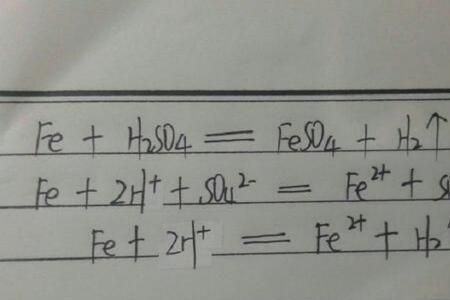 Fe + H₂SO₄ = FeSO₄ + H₂↑
Fe + 2H⁺ + SO₄²⁻ = Fe²⁺ +
Fe + 2H⁺ = Fe²⁺ + H₂